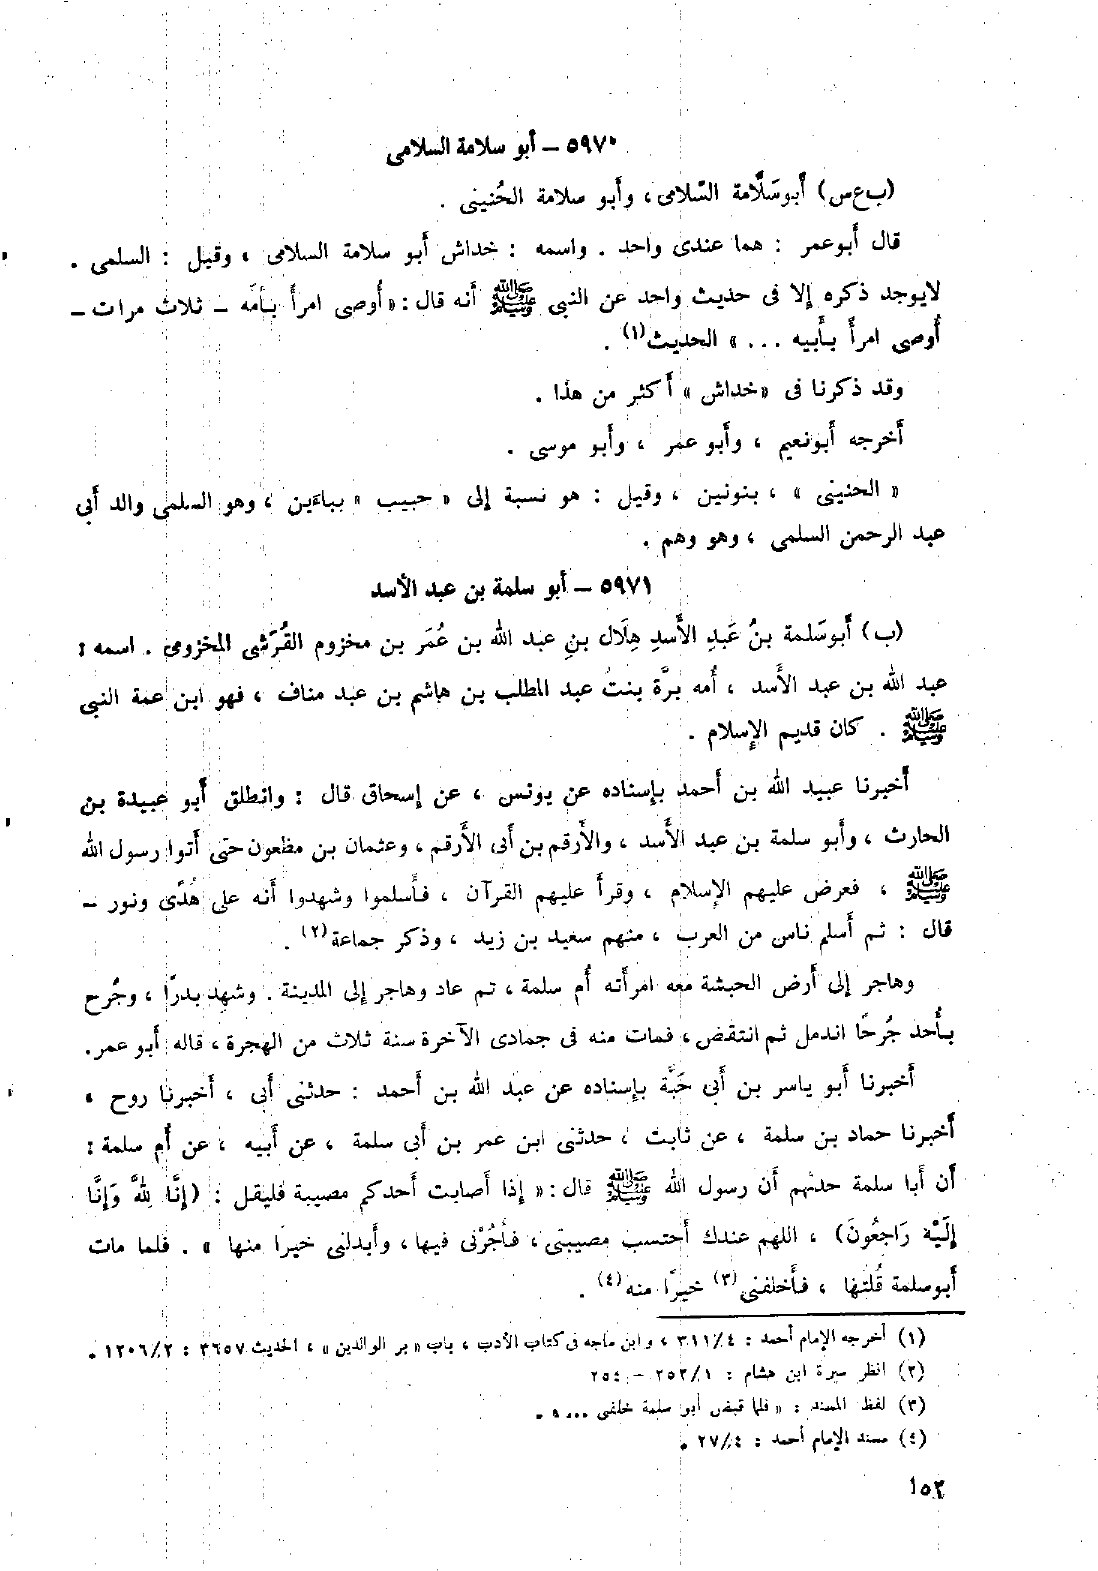 ٥٩٧٠ – أبو سلامة السلامى
(ب ع س) أبو سَلَّامة السّلامى، وأبو سلامة الحُنينى .
قال أبو عمر : هما عندى واحد . واسمه : خداش أبو سلامة السلامى ، وقيل : السلمى .
لا يوجد ذكره إلا فى حديث واحد عن النبى ﷺ أنه قال : « أُوصى امرأً بأمه – ثلاث مرات –
أُوصى امرأً بأبيه ... » الحديث (١) .
وقد ذكرنا فى « خداش » أكثر من هذا .
أخرجه أبو نعيم ، وأبو عمر ، وأبو موسى .
« الحنينى » ، بنونين ، وقيل : هو نسبة إلى « حبيب » بباءين ، وهو السلمى والد أبى
عبد الرحمن السلمى ، وهو وهم .
٥٩٧١ – أبو سلمة بن عبد الأسد
(ب) أبو سَلمة بنُ عَبدِ الأَسدِ هِلَال بنِ عبد الله بن عُمَر بن مخزوم القُرَشى المخزومى . اسمه :
عبد الله بن عبد الأسد ، أُمه برَّة بنتُ عبد المطلب بن هاشم بن عبد مناف ، فهو ابن عمة النبى
ﷺ . كان قديم الإسلام .
أخبرنا عبيد الله بن أحمد بإسناده عن يونس ، عن إسحاق قال : وانطلق أبو عبيدة بن
الحارث ، وأبو سلمة بن عبد الأسد ، والأرقم بن أبى الأرقم ، وعثمان بن مظعون حتى أتوا رسول الله
ﷺ ، فعرض عليهم الإسلام ، وقرأ عليهم القرآن ، فأسلموا وشهدوا أنه على هُدًى ونور –
قال : ثم أسلم ناس من العرب ، منهم سعيد بن زيد ، وذكر جماعة (٢) .
وهاجر إلى أرض الحبشة معه امرأته أُم سلمة ، ثم عاد وهاجر إلى المدينة . وشهد بدرًا ، وجُرح
بأُحد جُرحًا اندمل ثم انتقض ، فمات منه فى جمادى الآخرة سنة ثلاث من الهجرة ، قاله أبو عمر.
أخبرنا أبو ياسر بن أبى حَبَّة بإسناده عن عبد الله بن أحمد : حدثنى أبى ، أخبرنا روح ،
أخبرنا حماد بن سلمة ، عن ثابت ، حدثنى ابن عمر بن أبى سلمة ، عن أبيه ، عن أم سلمة :
أن أبا سلمة حدثهم أن رسول الله ﷺ قال : « إذا أصابت أحدكم مصيبة فليقل : (إِنَّا لِلَّهِ وَإِنَّا
إِلَيْهِ رَاجِعُونَ) ، اللهم عندك أحتسب مصيبتى ، فأْجُرْنى فيها ، وأبدلنى خيرًا منها » . فلما مات
أبو سلمة قُلتها ، فأَخلفنى (٣) خيرًا منه (٤) .
(١) أخرجه الإمام أحمد : ٤/ ٣١١ ، وابن ماجه فى كتاب الأدب ، باب « بر الوالدين » ، الحديث ٣٦٥٧ : ٢/ ١٢٠٦ .
(٢) انظر سيرة ابن هشام : ١/ ٢٥٣ – ٢٥٤
(٣) لفظ المسند : « فلما قبض أبو سلمة خلفى ... » .
(٤) مسند الإمام أحمد : ٤/ ٢٧ .
١٥٢